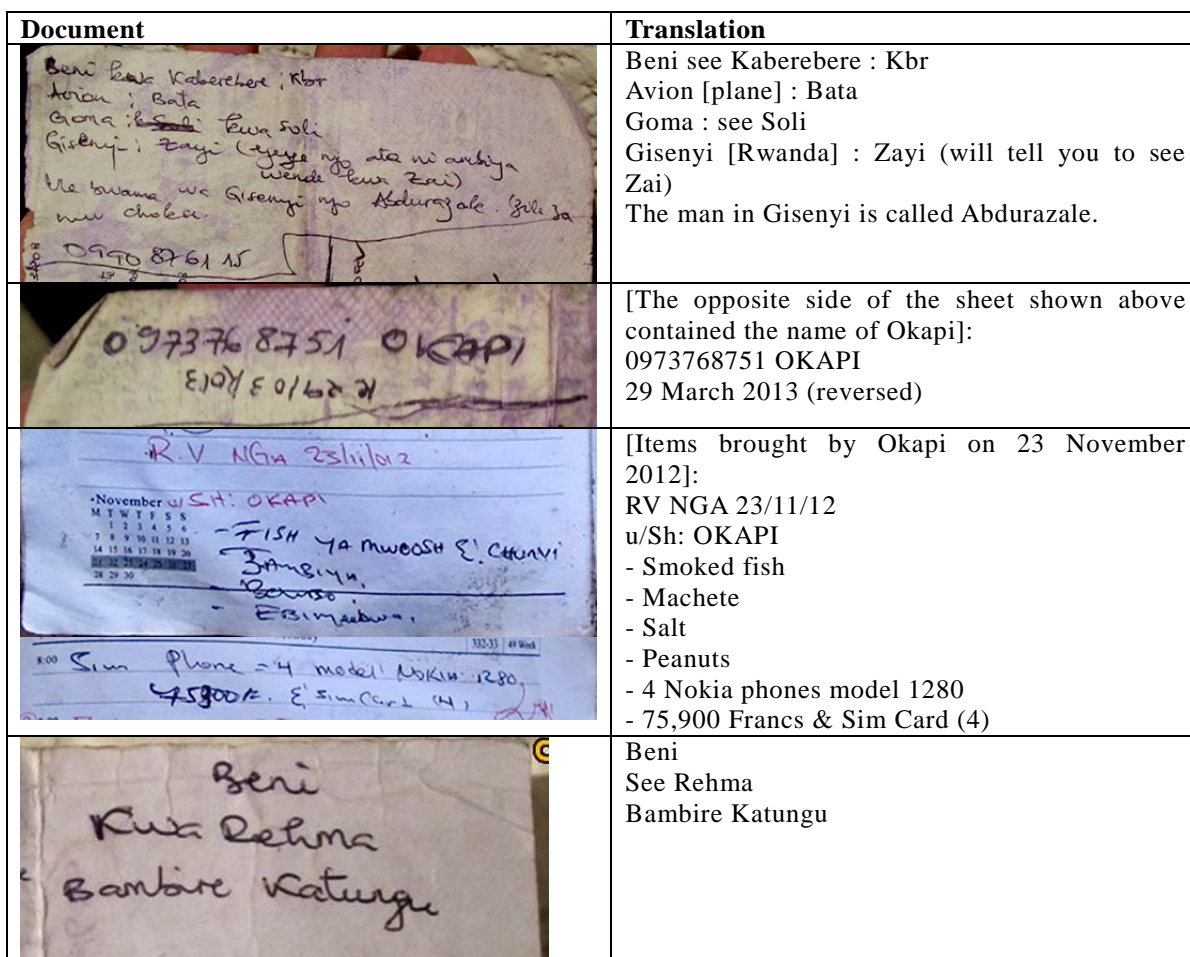 Document
Translation
Beni kwa Kaberebere ; Kbr
Avion ; Bata
Goma : kwa Soli
Gisenyi ; Zayi (yeye njo ata ni ambiya
wende kwa Zai)
bwama wa Gisenyi njo Abdurazale.
choka.
0990 8761 15
Beni see Kaberebere : Kbr
Avion [plane] : Bata
Goma : see Soli
Gisenyi [Rwanda] : Zayi (will tell you to see
Zai)
The man in Gisenyi is called Abdurazale.
0973768751 OKAPI
29/03/2013
[The opposite side of the sheet shown above
contained the name of Okapi]:
0973768751 OKAPI
29 March 2013 (reversed)
R.V NGA 23/11/012
•November u/SH: OKAPI
M T W T F S S
1 2 3 4 5 6
7 8 9 10 11 12 13
14 15 16 17 18 19 20
21 22 23 24 25 26 27
28 29 30
- FISH YA MWOOSH &' CHUNVI
- EBIMEABWA.
332-33 49 Week
8:00 Sim Phone = 4 model NOKIA 1280,
& Sim Card (4)
[Items brought by Okapi on 23 November
2012]:
RV NGA 23/11/12
u/Sh: OKAPI
- Smoked fish
- Machete
- Salt
- Peanuts
- 4 Nokia phones model 1280
- 75,900 Francs & Sim Card (4)
Beni
Kwa Rehma
Bambire Katungu
Beni
See Rehma
Bambire Katungu